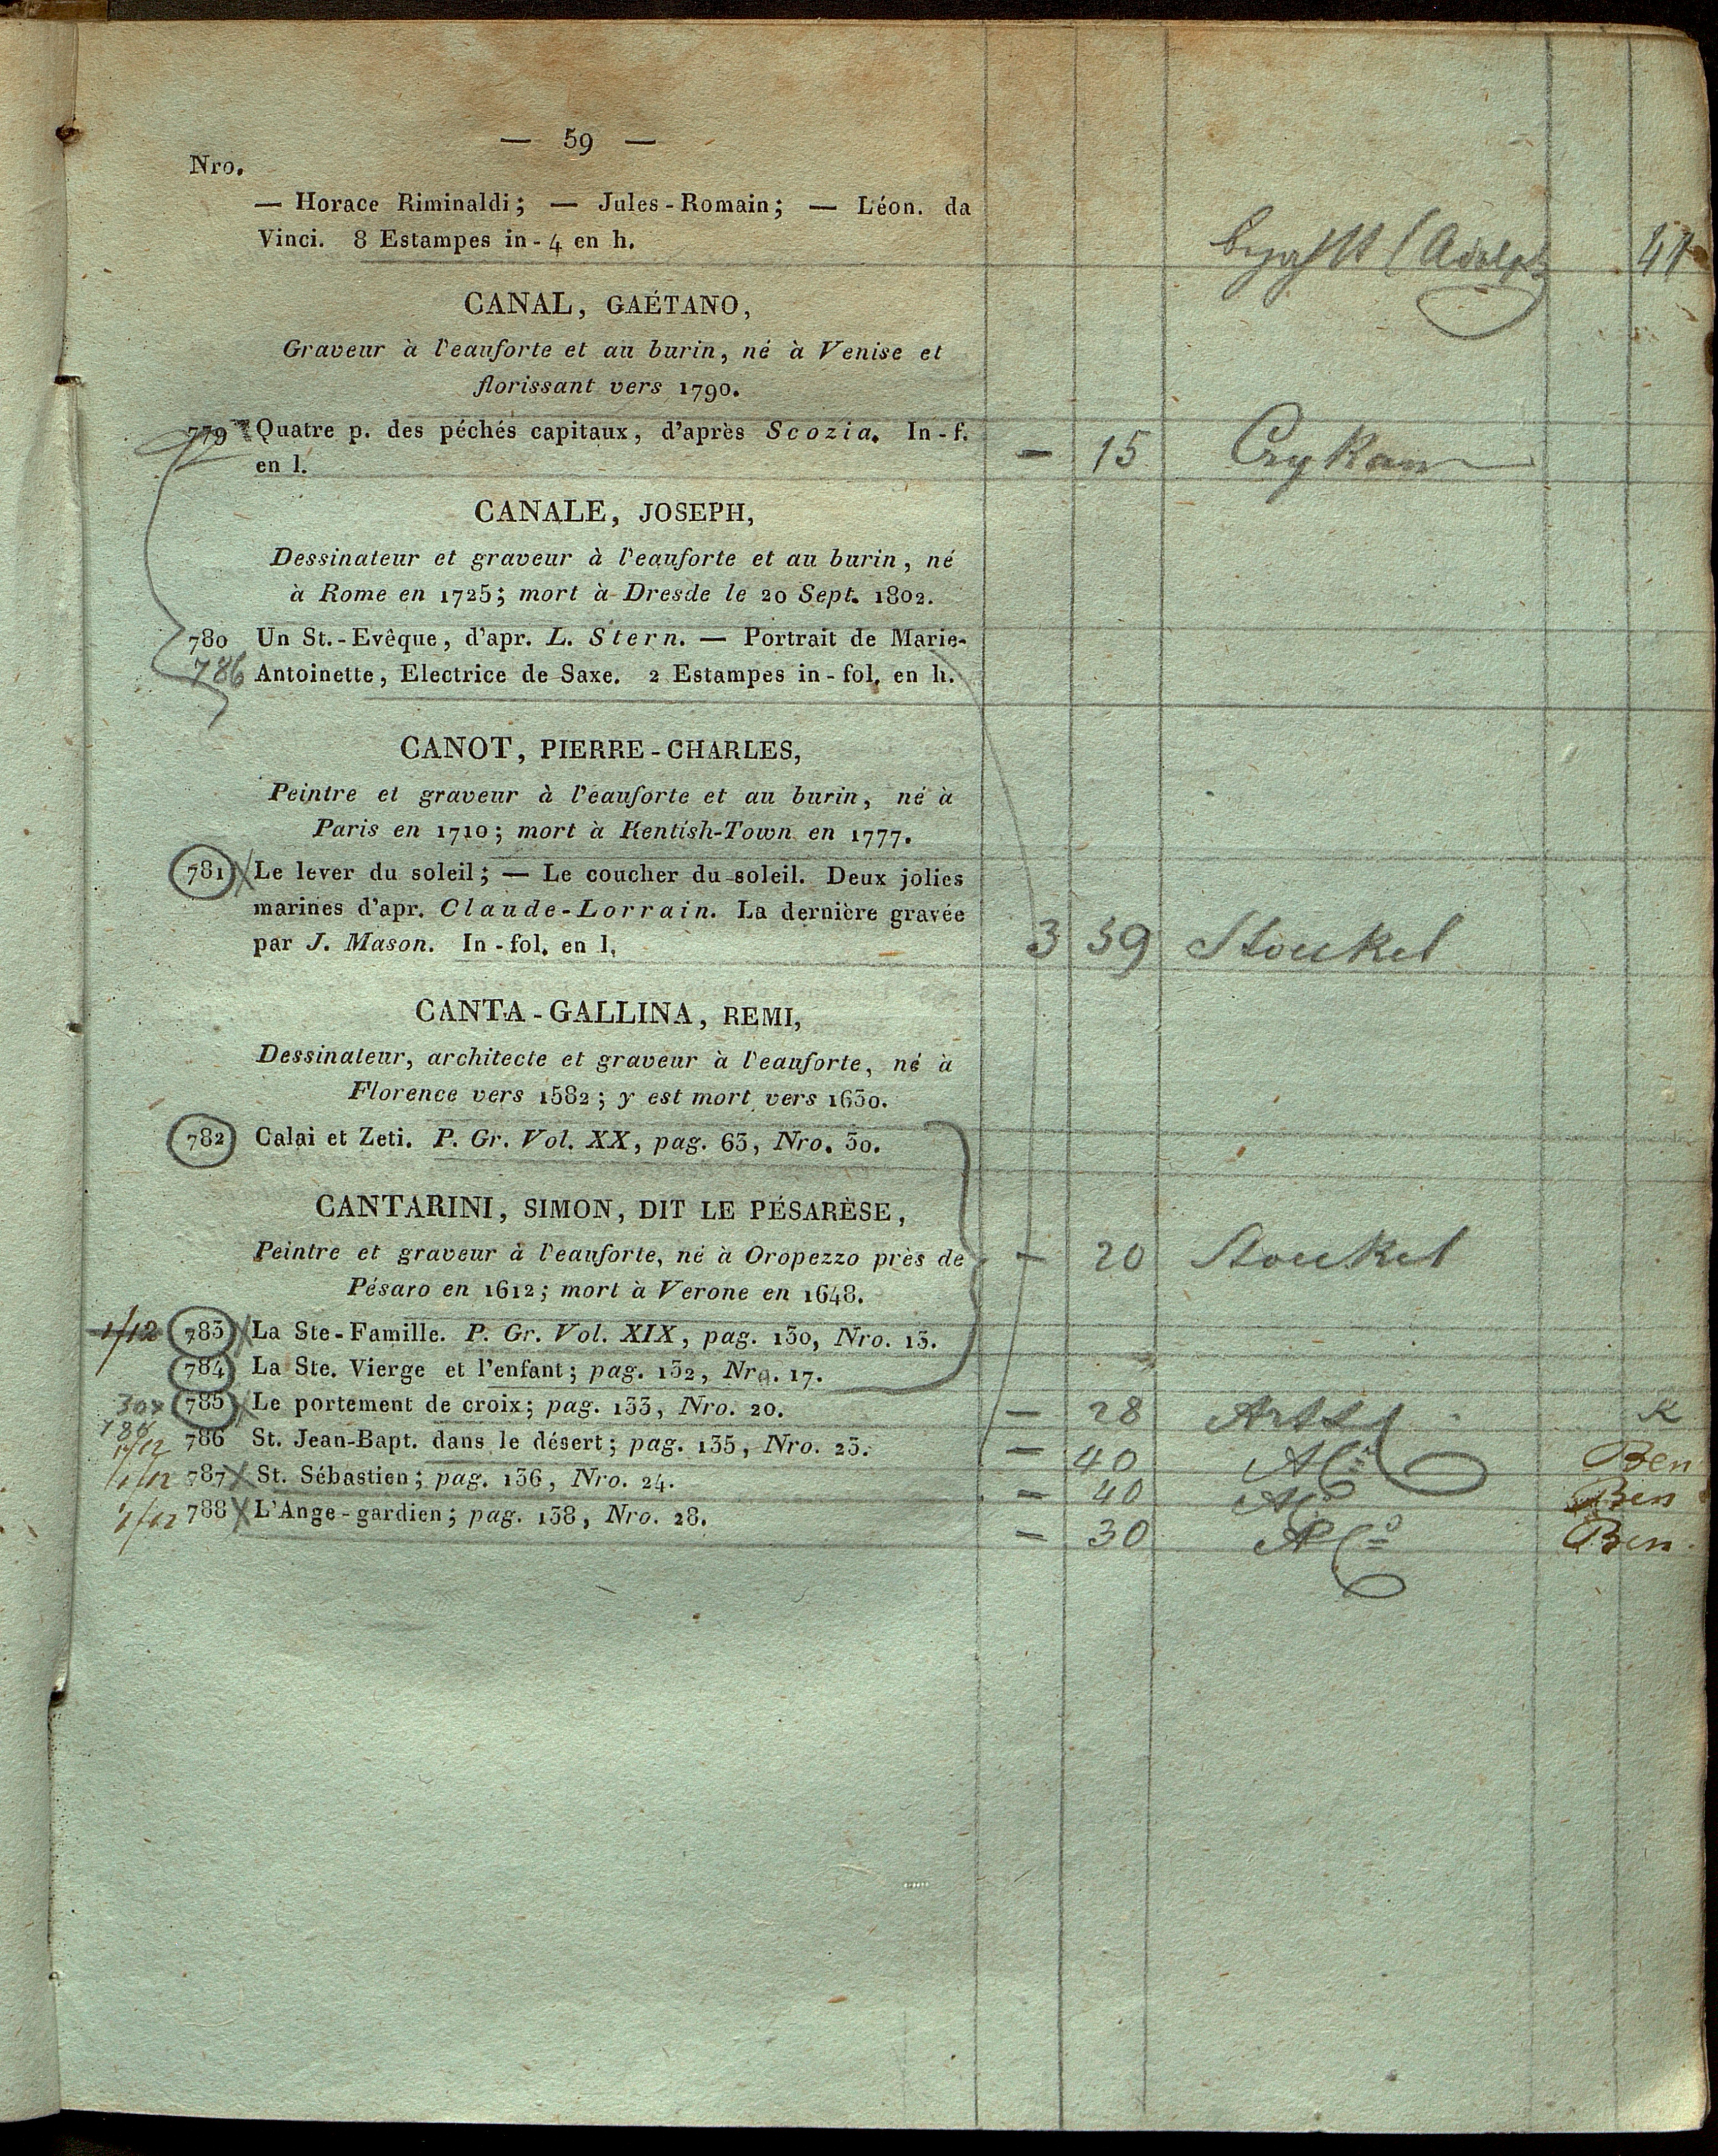 — 59 —
Nro.
— Horace Riminaldi; — Jules-Romain; — Léon. da
Vinci. 8 Estampes in-4 en h.
(Adolph 41
CANAL, GAÉTANO,
Graveur à l'eauforte et au burin, né à Venise et
florissant vers 1790.
779 Quatre p. des péchés capitaux, d'après Scozia. In-f.
en l. — 15
CANALE, JOSEPH,
Dessinateur et graveur à l'eauforte et au burin, né
à Rome en 1725; mort à Dresde le 20 Sept. 1802.
780 Un St.-Evêque, d'apr. L. Stern. — Portrait de Marie-
786 Antoinette, Electrice de Saxe. 2 Estampes in-fol. en h.
CANOT, PIERRE-CHARLES,
Peintre et graveur à l'eauforte et au burin, né à
Paris en 1710; mort à Kentish-Town en 1777.
781 Le lever du soleil; — Le coucher du soleil. Deux jolies
marines d'apr. Claude-Lorrain. La dernière gravée
par J. Mason. In-fol. en l. 3 39 Stoukel
CANTA-GALLINA, REMI,
Dessinateur, architecte et graveur à l'eauforte, né à
Florence vers 1582; y est mort vers 1630.
782 Calai et Zeti. P. Gr. Vol. XX, pag. 63, Nro. 30.
CANTARINI, SIMON, DIT LE PÉSARÈSE,
Peintre et graveur à l'eauforte, né à Oropezzo près de — 20 Stoukel
Pésaro en 1612; mort à Verone en 1648.
1/12 783 La Ste-Famille. P. Gr. Vol. XIX, pag. 130, Nro. 13.
784 La Ste. Vierge et l'enfant; pag. 132, Nro. 17.
30x 785 Le portement de croix; pag. 133, Nro. 20. — 28 K
1/12 786 St. Jean-Bapt. dans le désert; pag. 135, Nro. 23. — 40 Ben
1/12 787 St. Sébastien; pag. 136, Nro. 24. — 40 Ben
1/12 788 L'Ange-gardien; pag. 138, Nro. 28. — 30 Ben.